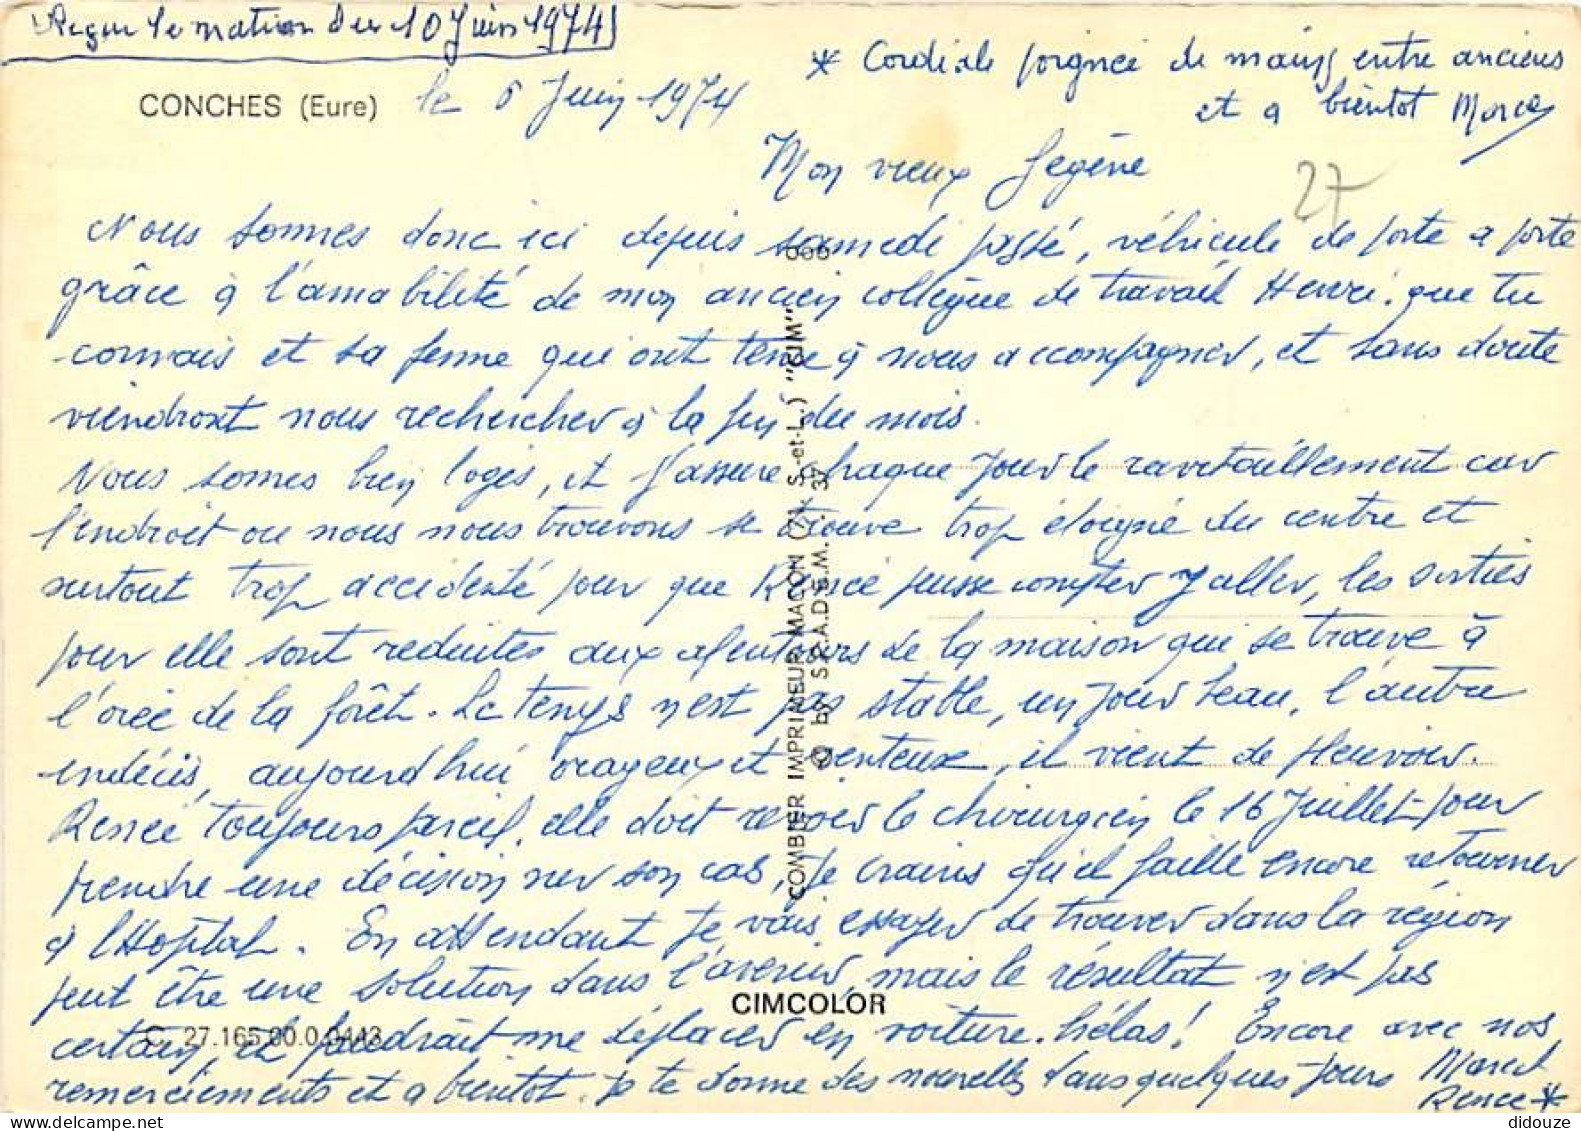 Reçue le matin du 10 Juin 1974
CONCHES (Eure) le 6 Juin 1974
* Cordiale poignée de mains entre anciens
et a bientot Marcel
Mon vieux Gegène
27
Nous sommes donc ici depuis samedi passé, véhicule de porte a porte
grâce à l'amabilité de mon ancien collègue de travail Henri. que tu
connais et sa femme qui ont tenue à nous accompagner, et sans doute
viendront nous rechercher à la fin du mois.
Nous sommes bien logés, et J'assure chaque Jour le ravitaillement car
l'endroit ou nous nous trouvons se trouve trop éloigné du centre et
surtout trop accidenté pour que Renée puisse compter y aller, les sorties
pour elle sont reduites aux alentours de la maison qui se trouve à
l'orée de la forêt. Le temps n'est pas stable, un Jour beau, l'autre
indécis, aujourd'hui orageux et venteux, il vient de pleuvoir.
Renée toujours pareil, elle doit revoir le chirurgien le 16 Juillet pour
prendre une décision sur son cas, Je crains qu'il faille encore retourner
à l'Hopital. En attendant Je vais essayer de trouver dans la région
peut être une solution dans l'avenir, mais le résultat n'est pas
certain, il faudrait me déplacer en voiture. hélas! Encore avec nos
remerciements et a bientot. Je te donne des nouvelles dans quelques Jours Marcel
Renée *
COMBIER IMPRIMEUR MACON (7 S.-et-L.) "CIM"
© by S.P.A.D.E.M.
CIMCOLOR
C 27.165.00.0.0443
didouze